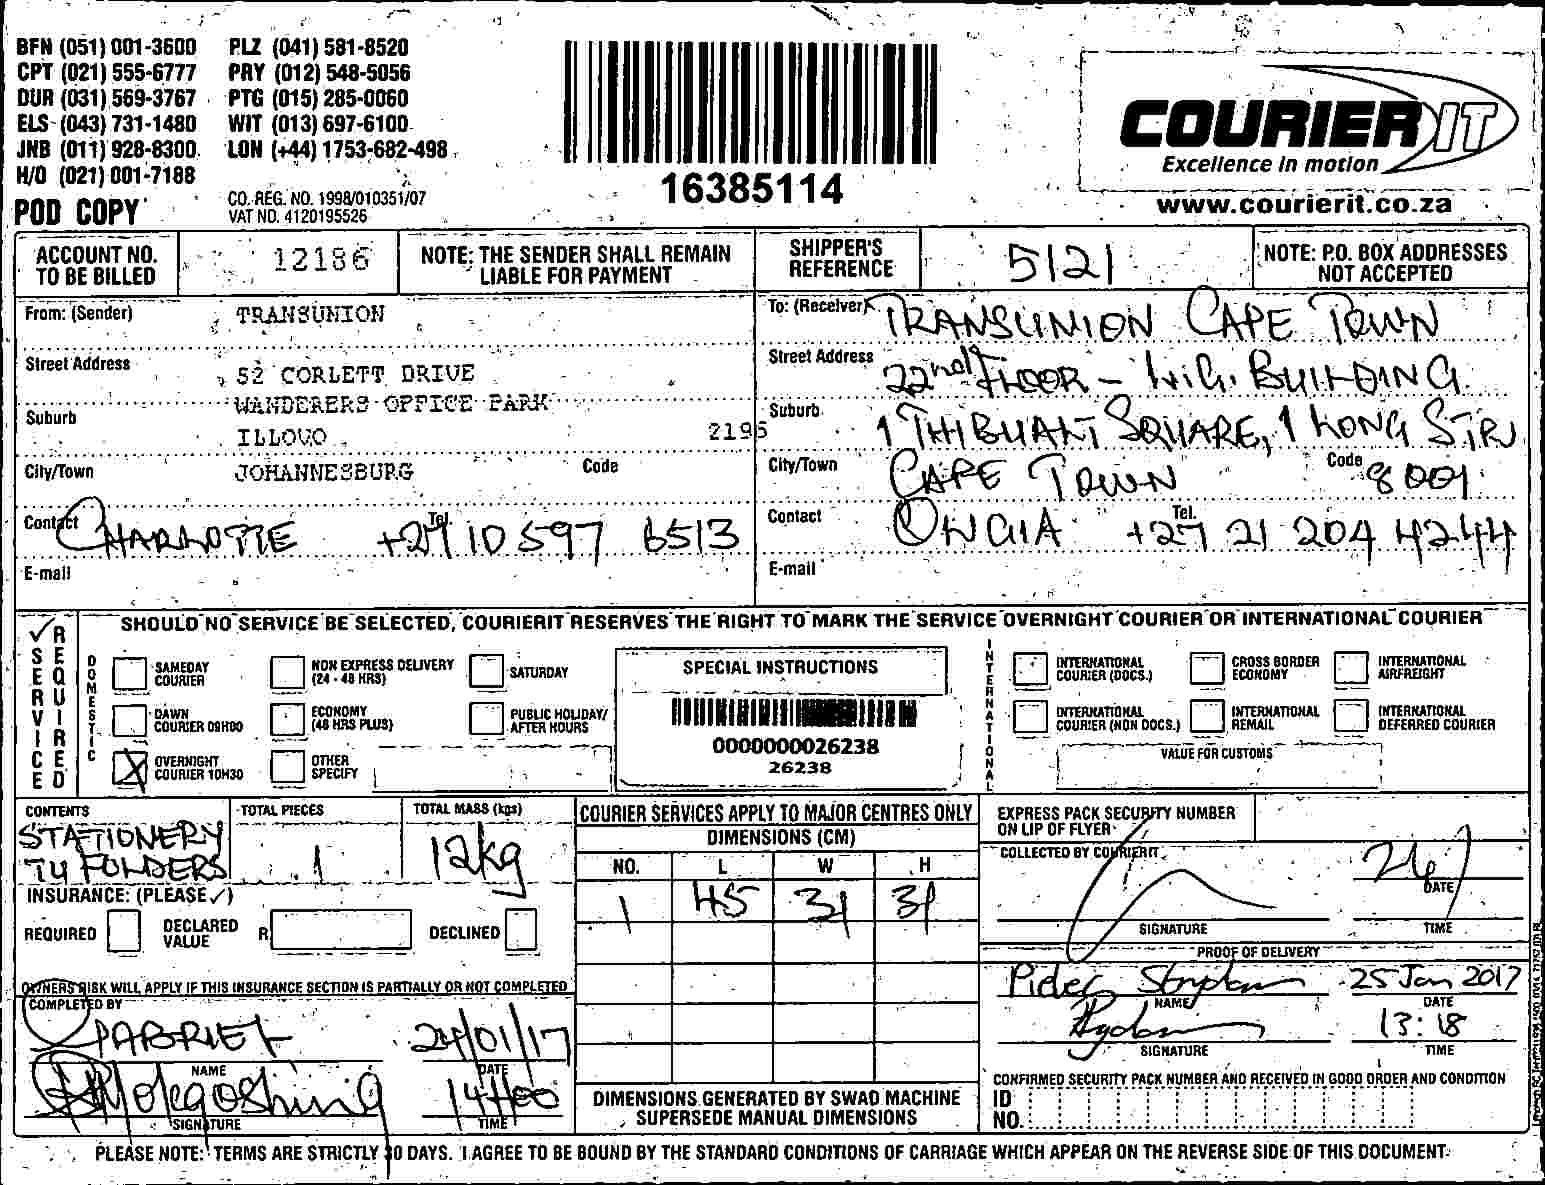 BFN (051) 001-3600 PLZ (041) 581-8520
CPT (021) 555-6777 PRY (012) 548-5056
DUR (031) 569-3767 PTG (015) 285-0060
ELS (043) 731-1480 WIT (013) 697-6100
JNB (011) 928-8300 LON (+44) 1753-682-498
H/O (021) 001-7188
POD COPY
CO. REG. NO. 1998/010351/07
VAT NO. 4120195526
16385114
COURIER IT
Excellence in motion
www.courierit.co.za
ACCOUNT NO. TO BE BILLED 12186
NOTE: THE SENDER SHALL REMAIN LIABLE FOR PAYMENT
SHIPPER'S REFERENCE 5121
NOTE: P.O. BOX ADDRESSES NOT ACCEPTED
From: (Sender) TRANSUNION
Street Address 52 CORLETT DRIVE
WANDERERS OFFICE PARK
Suburb ILLOVO 2196
City/Town JOHANNESBURG Code
Contact CHARLOTTE Tel. +27 10 597 6513
E-mail
To: (Receiver) TRANSUNION CAPE TOWN
Street Address 22nd FLOOR - BUILDING
Suburb 1 SQUARE, 1 LONG STR
City/Town CAPE TOWN Code 8001
Contact Tel. +27 21 204 4244
E-mail
SERVICE REQUIRED
SHOULD NO SERVICE BE SELECTED, COURIERIT RESERVES THE RIGHT TO MARK THE SERVICE OVERNIGHT COURIER OR INTERNATIONAL COURIER
DOMESTIC
SAMEDAY COURIER
NON EXPRESS DELIVERY (24 - 48 HRS)
SATURDAY
DAWN COURIER 09H00
ECONOMY (48 HRS PLUS)
PUBLIC HOLIDAY/ AFTER HOURS
OVERNIGHT COURIER 10H30
OTHER SPECIFY
SPECIAL INSTRUCTIONS
0000000026238
26238
INTERNATIONAL
INTERNATIONAL COURIER (DOCS.)
CROSS BORDER ECONOMY
INTERNATIONAL AIRFREIGHT
INTERNATIONAL COURIER (NON DOCS.)
INTERNATIONAL REMAIL
INTERNATIONAL DEFERRED COURIER
VALUE FOR CUSTOMS
CONTENTS TOTAL PIECES TOTAL MASS (kgs)
STATIONERY
TU FOLDERS 1 12kg
INSURANCE: (PLEASE ✓)
REQUIRED DECLARED VALUE R DECLINED
OWNERS RISK WILL APPLY IF THIS INSURANCE SECTION IS PARTIALLY OR NOT COMPLETED
COMPLETED BY
GABRIEL 24/01/17
NAME DATE
14H00
SIGNATURE TIME
COURIER SERVICES APPLY TO MAJOR CENTRES ONLY
DIMENSIONS (CM)
NO. L W H
1 45 31 31
DIMENSIONS GENERATED BY SWAD MACHINE SUPERSEDE MANUAL DIMENSIONS
EXPRESS PACK SECURITY NUMBER ON LIP OF FLYER
COLLECTED BY COURIERIT
DATE
SIGNATURE TIME
PROOF OF DELIVERY
Pieter 25 Jan 2017
NAME DATE
13:18
SIGNATURE TIME
CONFIRMED SECURITY PACK NUMBER AND RECEIVED IN GOOD ORDER AND CONDITION
ID NO.
PLEASE NOTE: TERMS ARE STRICTLY 30 DAYS. I AGREE TO BE BOUND BY THE STANDARD CONDITIONS OF CARRIAGE WHICH APPEAR ON THE REVERSE SIDE OF THIS DOCUMENT.